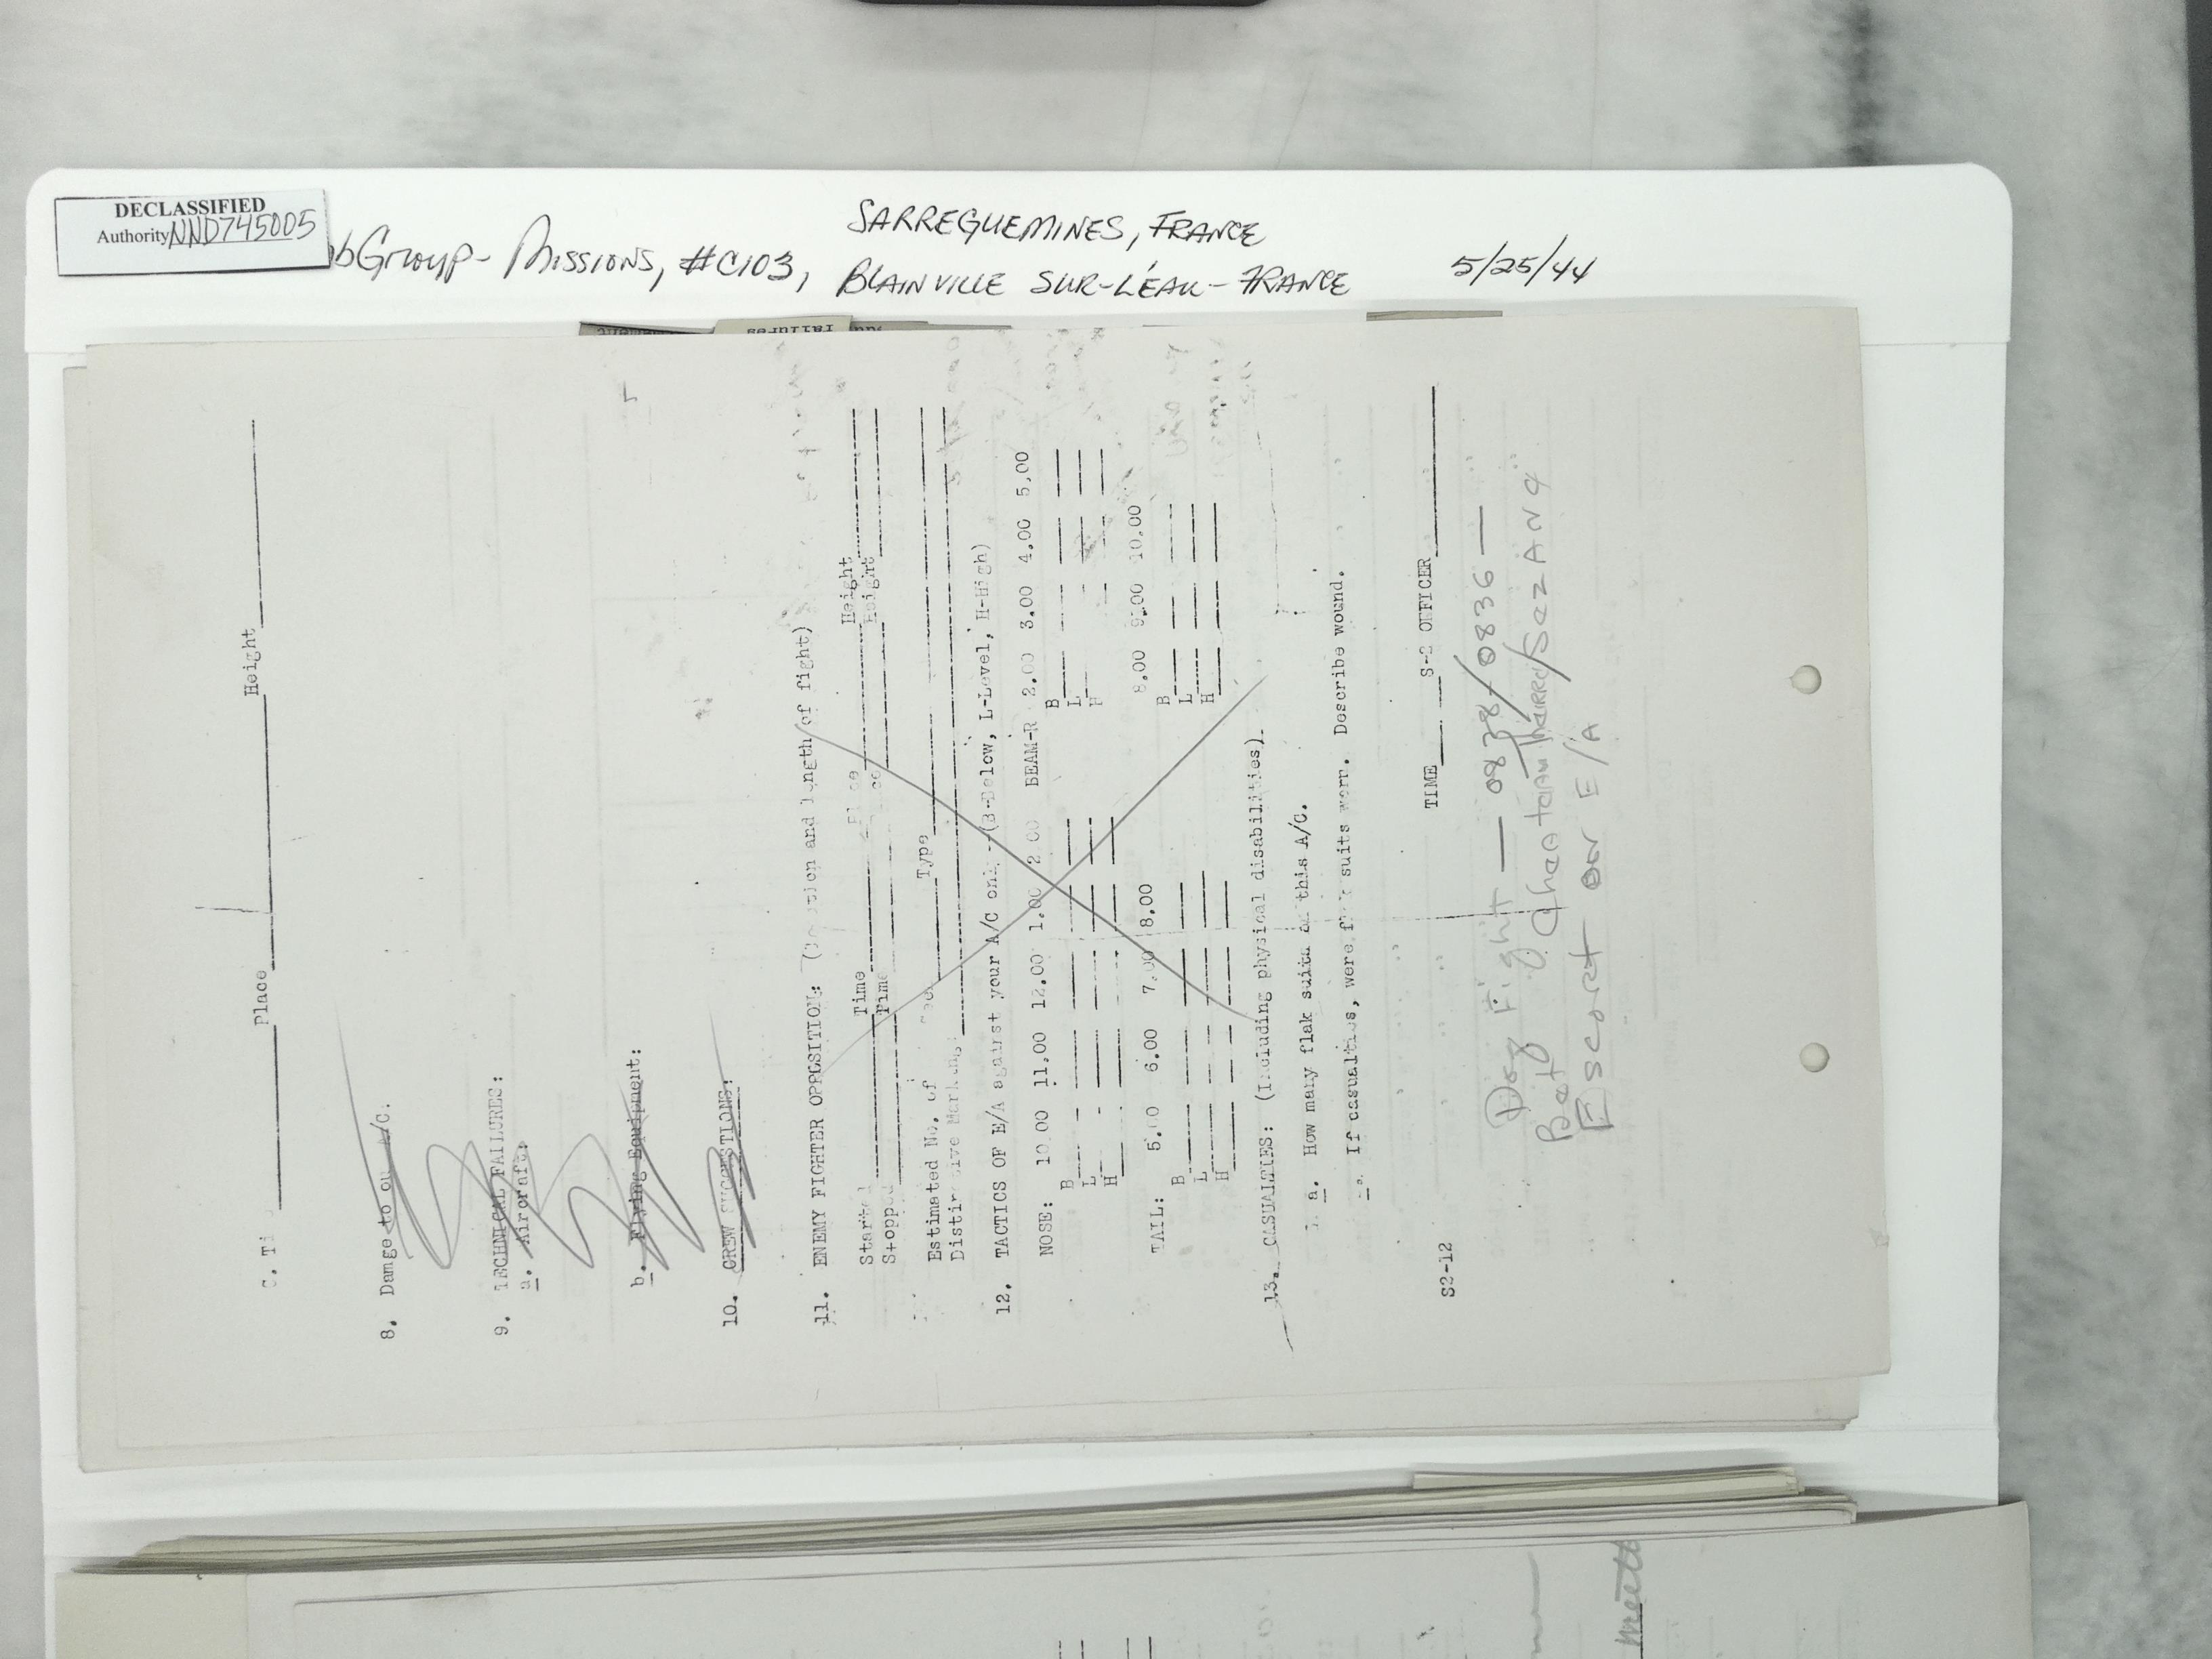 DECLASSIFIED
Authority NND745005
bGroup - Missions, #C103,
SARREGUEMINES, FRANCE
BLAINVILLE SUR-L'EAU - FRANCE
5/25/44
failures
Place Height
8. Damage to our A/C.
9. TECHNICAL FAILURES:
a. Aircraft:
b. Flying Equipment:
10. CREW SUGGESTIONS:
11. ENEMY FIGHTER OPPOSITION: (Duration and length of fight)
Started Time Place Height
Stopped Time Height
Estimated No. of Type
Distinctive Markings:
12. TACTICS OF E/A against your A/C only -- (B-Below, L-Level, H-High)
NOSE: 10 00 11.00 12.00 1.00 2 00 BEAM-R 2.00 3.00 4.00 5.00
B B
L L
H
TAIL: 5.00 6.00 7.00 8.00 8.00 9.00 10.00
B B
L L
H H
13. CASUALTIES: (Including physical disabilities).
a. How many flak suits on this A/C.
If casualties, were flak suits worn. Describe wound.
TIME S-2 OFFICER
S2-12
Dog Fight — 0828/0836 —
Sezanne
Escort our E/A